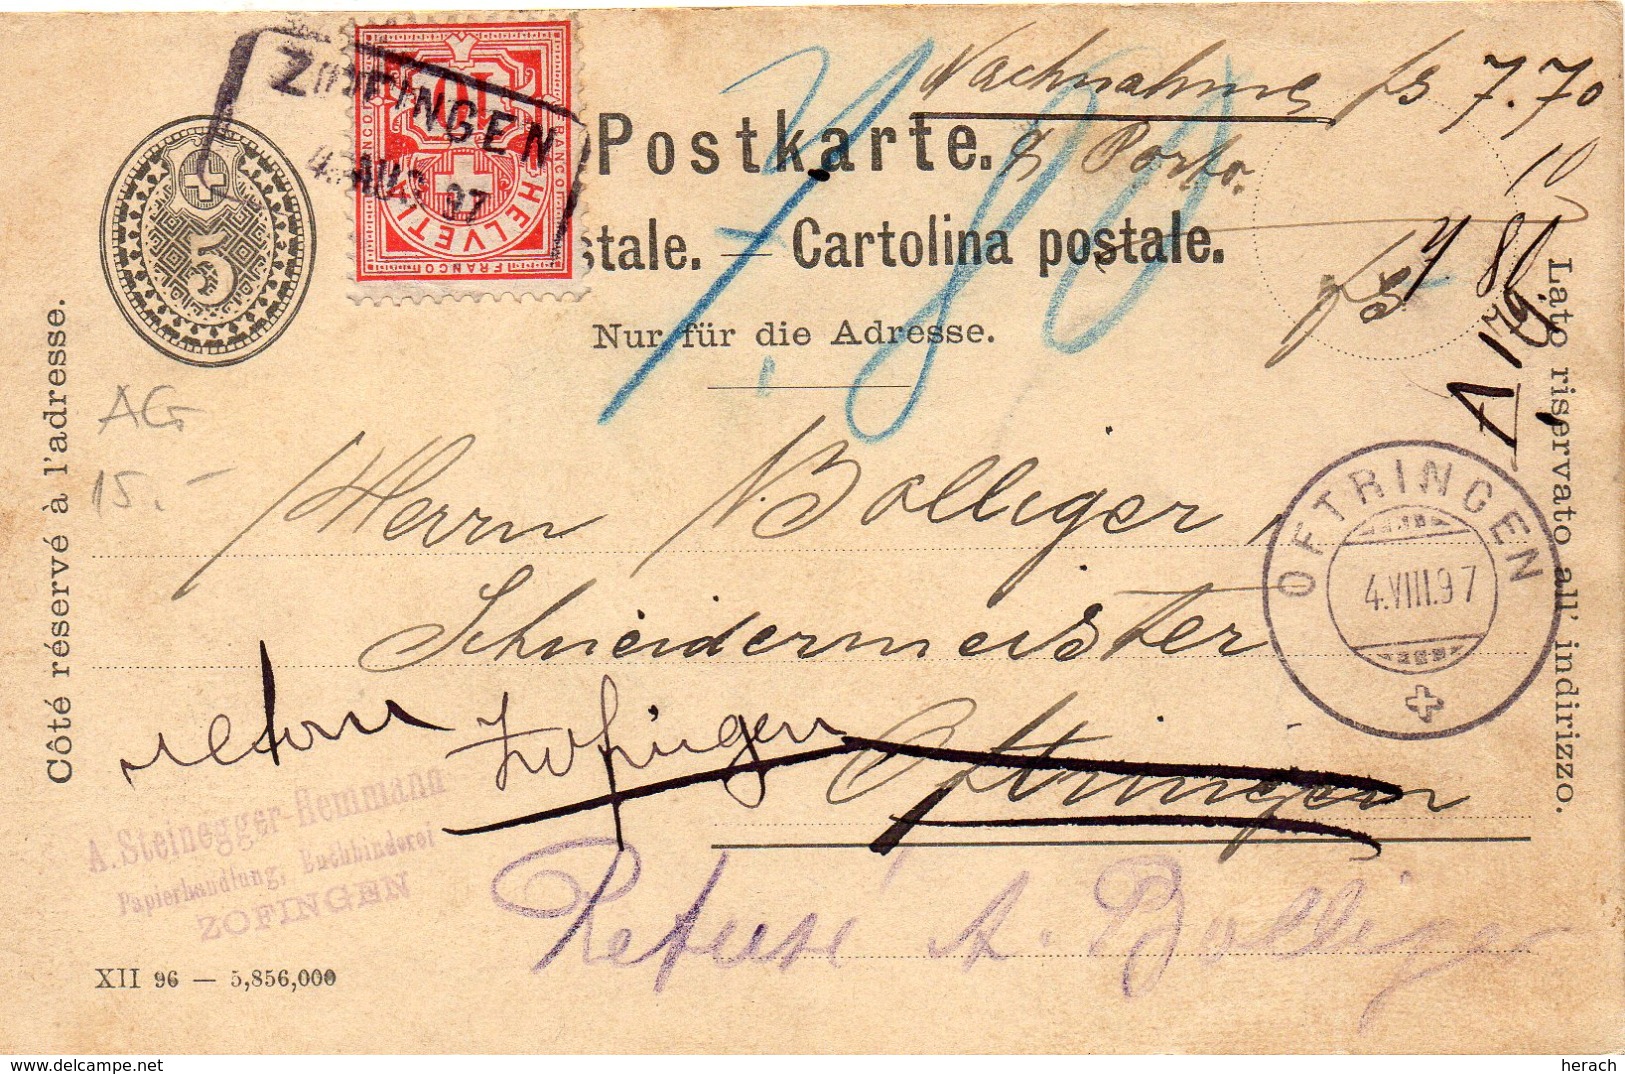 Nachnahme fs 7.70
& Porto. 10
fs
7.80
Postkarte.
stale. — Cartolina postale.
Nur für die Adresse.
ZOFINGEN
4. AUG. 97
10
FRANCO
FRANCO
FRANCO
HELVETIA
5
Côté réservé à l'adresse.
Lato riservato all' indirizzo.
AG
15.-
Herrn A. Bolliger,
Schneidermeister
Oftringen
retour Zofingen
OFTRINGEN
4.VIII.97
A. Steinegger-Hemmann
Papierhandlung, Buchbinderei
ZOFINGEN
Refusé A. Bolliger
XII 96 — 5,856,000
delcampe.net
herach